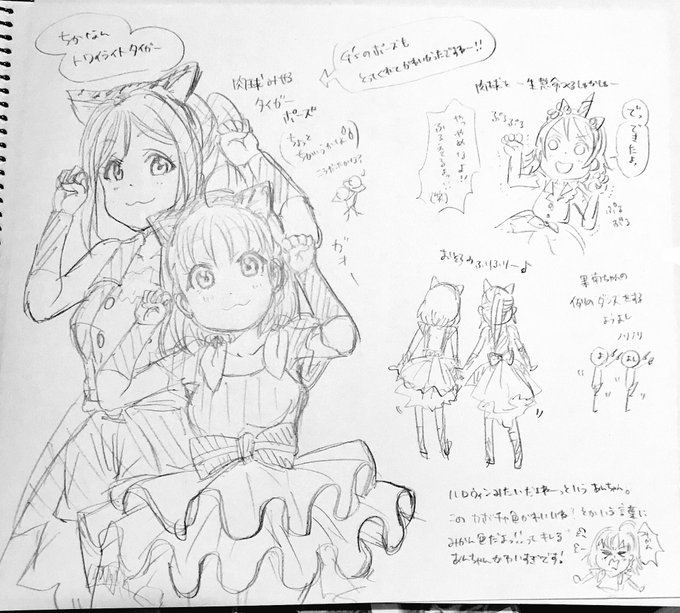 ちかなん
トワイライトタイガー
G'sのポーズも
とってくれてかわいかったですねー!!
肉球みせる
タイガー
ポーズ
ちょっと
ちがいうかべ
こうだったかな?
ガオー
肉球を一生懸命つくる
ぷるぷる
でっ
できたよ
ぷるぷる
やっやめなよ!!
ふるえてるよ!!
(笑)
おしりふりふりー♪
果南ちゃんの
例のダンスをする
ようよし
ノリノリ
よう
よし
ハロウィンみたいだよねーっという あんちゃん。
この カボチャ色かわいいね! とかいう言葉に
みかん色だよっ!! ってキレる
あんちゃんかわいすぎです!
みかん